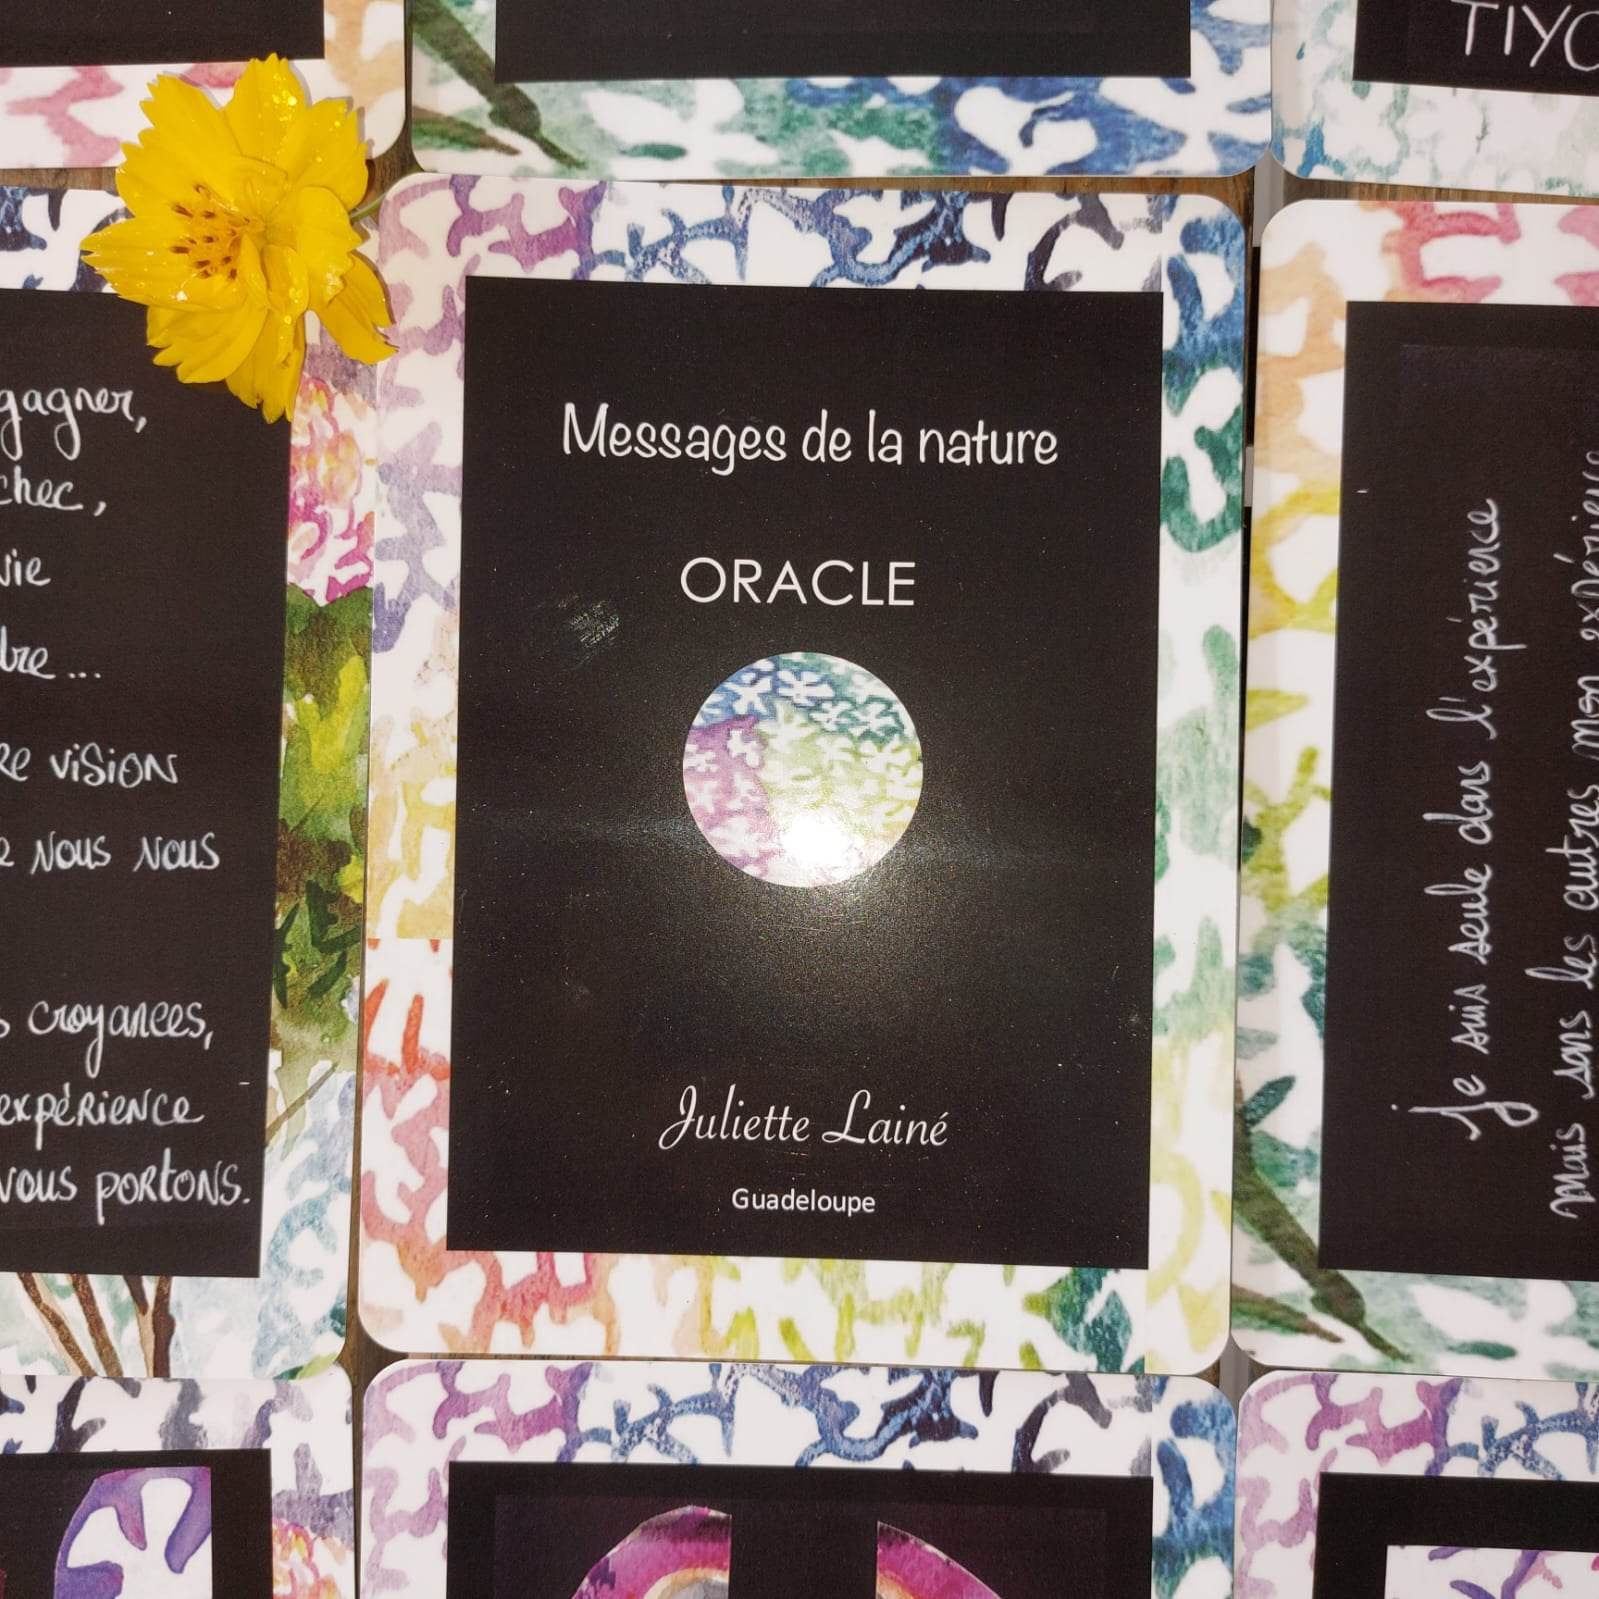 TIYO
gagner,
chec,
vie
bre...
re vision
e nous nous
s croyances,
expérience
nous portons.
Messages de la nature
ORACLE
Juliette Lainé
Guadeloupe
Je suis seule dans l'expérience
mais sans les autres mon expérience